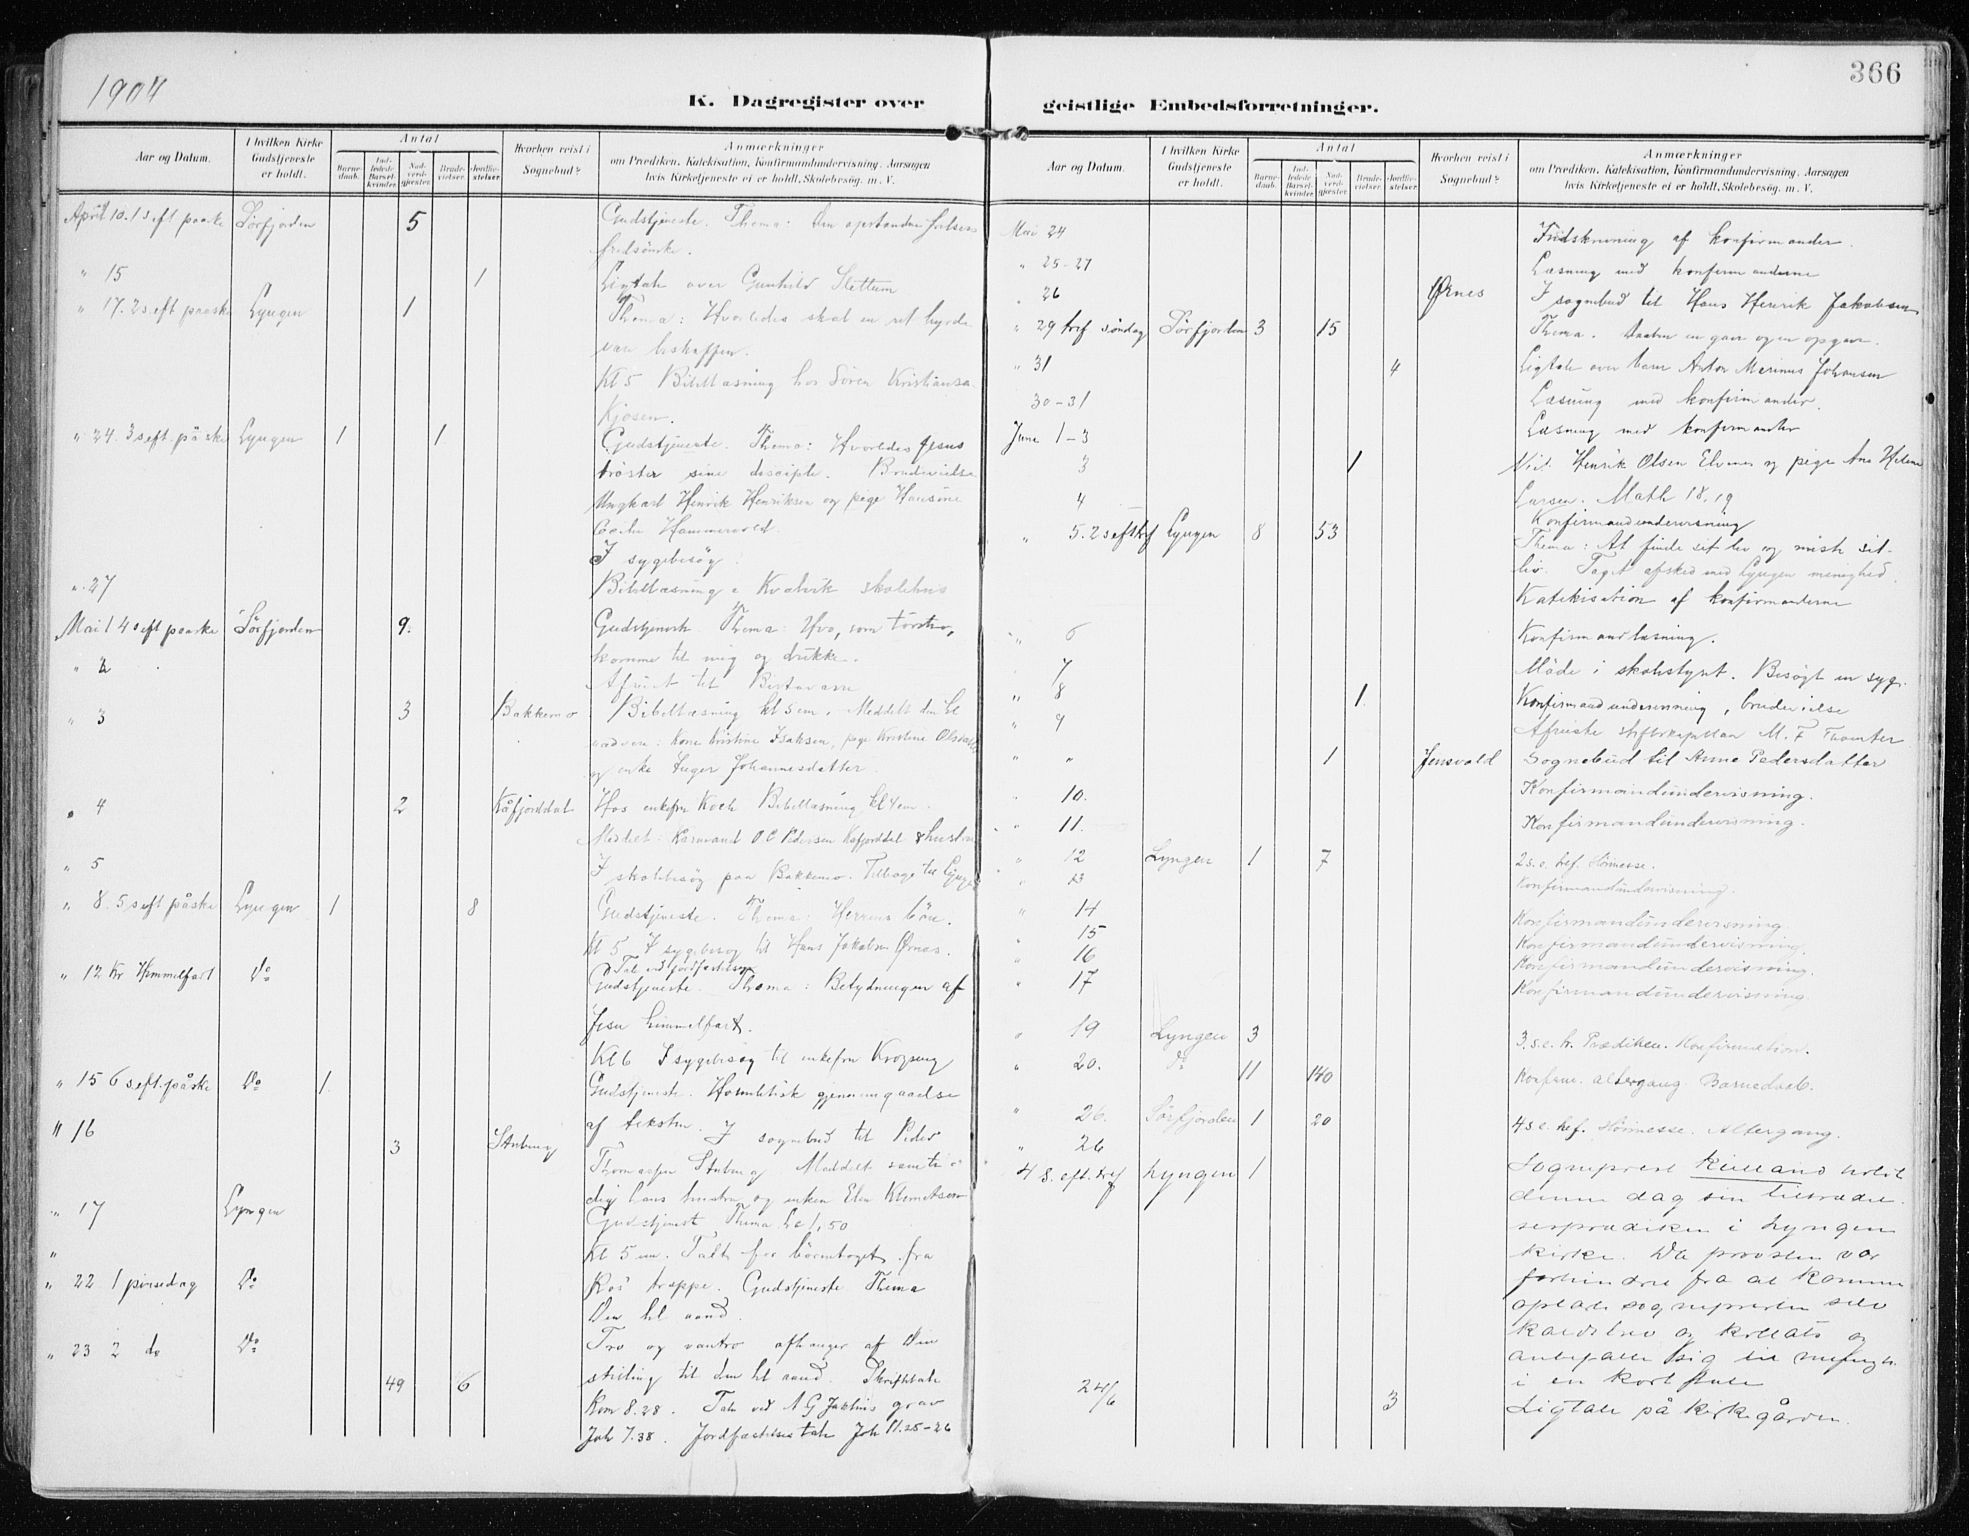 1904
366
K. Dagregister over geistlige Embedsforretninger.
Aar og Datum.
I hvilken Kirke Gudstjeneste er holdt.
Antal
Barnedaab.
Indledede Barselkvinder.
Nadverdgjester.
Brudevielser.
Jordfæstelser.
Hvorhen reist i Sognebud?
Anmærkninger
om Prædiken, Katekisation, Konfirmandundervisning, Aarsagen
hvis Kirketjeneste ei er holdt, Skolebesøg, m. V.
April 10. 1 s eft paaske Sørfjorden 5 Gudstjeneste. Thema: Den opstandne frelsers
fredsønske.
" 15 1 Ligtale over Gunhild Slettum
" 17. 2 s eft paaske Lyngen 1 Thema: Hvorledes skal en ret hyrde
være beskaffen.
Kl 5 Bibellæsning hos Søren Kristiansen
Kjosen.
" 24. 3 s eft påske Lyngen 1 1 Gudstjeneste. Thema: Hvorledes Jesus
trøster sine disciple. Brudevielse
Ungkarl Henrik Henriksen og pige Hansine
Hammervold.
I sygebesøg
" 27 Bibellæsning i Kvalvik skolehus
Mai 1 4 s eft paaske Sørfjorden 9. Gudstjeneste. Thema: Hvo, som tørster,
komme til mig og drikke.
" 2 Afreist til Birtavarre
" 3 3 Bakkemo Bibellæsning kl 5 em. Meddelt den hl
nadvere: Kone Kristine Isaksen, pige Kristine Olsdatter
og enke Inger Johannesdatter.
" 4 2 Kåfjorddal Hos enkefru Koch Bibellæsning kl 4 em.
Meddelt: Kårmand O C Pedersen Kåfjorddal & hustru
" 5 I skolebesøg paa Bakkemo. Tilbage til Lyngen
" 8. 5 s eft påske Lyngen 1 8 Gudstjeneste. Thema: Herrens bøn.
Kl 5 I sygebesøg til Hans Jakobsen Ørnes.
Tale ved jordfæstelsen
" 12 Kr Himmelfart Do Gudstjeneste. Thema: Betydningen af
Jesu himmelfart.
Kl 6 I sygebesøg til enkefru
" 15 6 s eft. påske Do 1. Gudstjeneste. Homiletisk gjennemgaaelse
af teksten.
" 16 3 Stubeng I sognebud til Peder
Thomassen Stubeng Meddelt samti-
dig hans hustru og enken Elen Klemetsen
" 17 Lyngen Gudstjenest Thema Lc 1,50
" Kl 5 em. Talt for børnetoget fra
" 22 1 pinsedag Do Kos' trappe. Gudstjeneste Thema
Den hl aand.
" 23 2 do Do Tro og vantro afhænger af Din
49 6 stilling til den hl aand. Skriftetale
Rom 8.28. Tale ved grav
Joh 7.38. Jordfæstelsestale Joh 11.25-26
Aar og Datum.
I hvilken Kirke Gudstjeneste er holdt.
Antal
Barnedaab.
Indledede Barselkvinder.
Nadverdgjester.
Brudevielser.
Jordfæstelser.
Hvorhen reist i Sognebud?
Anmærkninger
om Prædiken, Katekisation, Konfirmandundervisning, Aarsagen
hvis Kirketjeneste ei er holdt, Skolebesøg, m. V.
Mai 24 Indskrivning af konfirmander.
" 25-27 Læsning med konfirmanderne
" 26 Ørnes I sognebud til Hans Henrik Jakobsen
" 29 tref søndag Sørfjorden 3 15 Thema. Daaben en gave og en opgave.
" 31 4 Ligtale over barn Anton Marinus Johansen
30-31 Læsning med konfirmander.
June 1-3 Læsning med konfirmander
3 1 Viet Henrik Olsen Elvenes og pige Ane Helene
Larsen. Math 18.19
4 Konfirmandundervisning
" 5. 2 s eft tref Lyngen 8 53 Thema: At finde sit liv og miste sit
liv. Taget afsked med Lyngen menighed.
Katekisation af konfirmanderne
" 6 Konfirmandlæsning.
7 Møde i skolestyret. Besøgt en syg.
" 8 1. Konfirmandundervisning, brudevielse
" 9 Afreiste stiftskapellan M. F.
" " 1 Jensvold Sognebud til Anne Pedersdatter
" 10. Konfirmandundervisning.
" 11. Konfirmandundervisning.
" 12 Lyngen 1 7 2 s. e. tref. Høimesse.
" 13 Konfirmandundervisning.
" 14 Konfirmandundervisning.
" 15 Konfirmandundervisning.
" 16 Konfirmandundervisning.
" 17 Konfirmandundervisning.
" 19 Lyngen 3 3. s. e. tr. Prædiken. Konfirmation.
" 20. Do 11 140 Konfirm. altergang. Barnedaab.
" 26. Sørfjorden 1 20 4 s. e. tref. Høimesse. Altergang.
" 26
4 S. eft. tref Lyngen 1 Sogneprest Kielland holdt
denne dag sin tiltrædel-
sesprædiken i Lyngen
kirke. Da provsten var
forhindret fra at komme
oplæste sognepresten selv
kaldsbrev og kollats og
anbefalte sig til menigh.
i en kort tale
24/6 3 Ligtale på kirkegården.